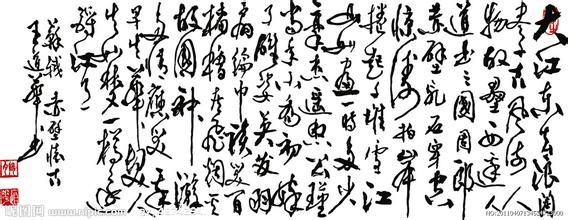 大江东去浪淘
尽千古风流人
物故垒西边人
道是三国周郎
赤壁乱石穿空
惊涛拍岸
捲起千堆雪江
山如画一时多少
豪杰遥想公瑾
当年小乔初嫁
了雄姿英发羽
扇纶巾谈笑间
樯橹灰飞烟灭
故国神游
多情应笑我
早生华发人
生如梦一樽还
酹江月
苏轼 赤壁怀古
王道华书
昵图网 www.nipic.com